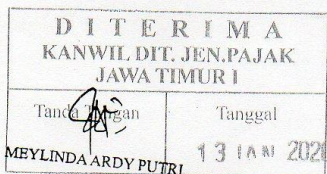 DITERIMA
KANWIL DIT. JEN.PAJAK
JAWA TIMUR I
Tanda Tangan
Tanggal
MEYLINDA ARDY PUTRI
13 JAN 2020